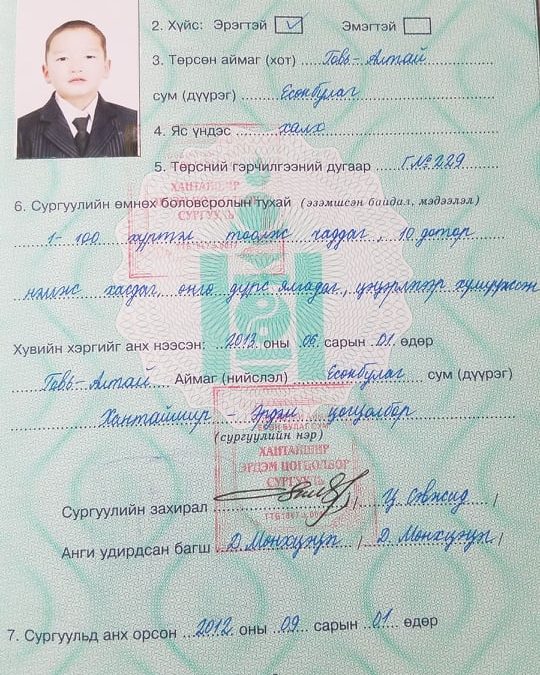 2. Хүйс: Эрэгтэй ☑ Эмэгтэй ☐
3. Төрсөн аймаг (хот) Говь-Алтай
сум (дүүрэг) Есөнбулаг
4. Яс үндэс халх
5. Төрсний гэрчилгээний дугаар Г№229
6. Сургуулийн өмнөх боловсролын тухай (эзэмшсэн байдал, мэдээлэл)
1-100 хүртэл тоолж чаддаг, 10 дотор
нэмж хасдаг, өнгө дүрс ялгадаг, цэцэрлэгээр хүмүүжсэн
Хувийн хэргийг анх нээсэн: 2013 оны 06 сарын 01 өдөр
Говь-Алтай Аймаг (нийслэл) Есөнбулаг сум (дүүрэг)
Хантайшир - Эрдэм цогцолбор
(сургуулийн нэр)
ХАНТАЙШИР
ЭРДЭМ ЦОГЦОЛБОР
СУРГУУЛЬ
Сургуулийн захирал / Ц /
Анги удирдсан багш Д. Мөнхцэцэг / Д. Мөнхцэцэг /
7. Сургуульд анх орсон 2012 оны 09 сарын 01 өдөр